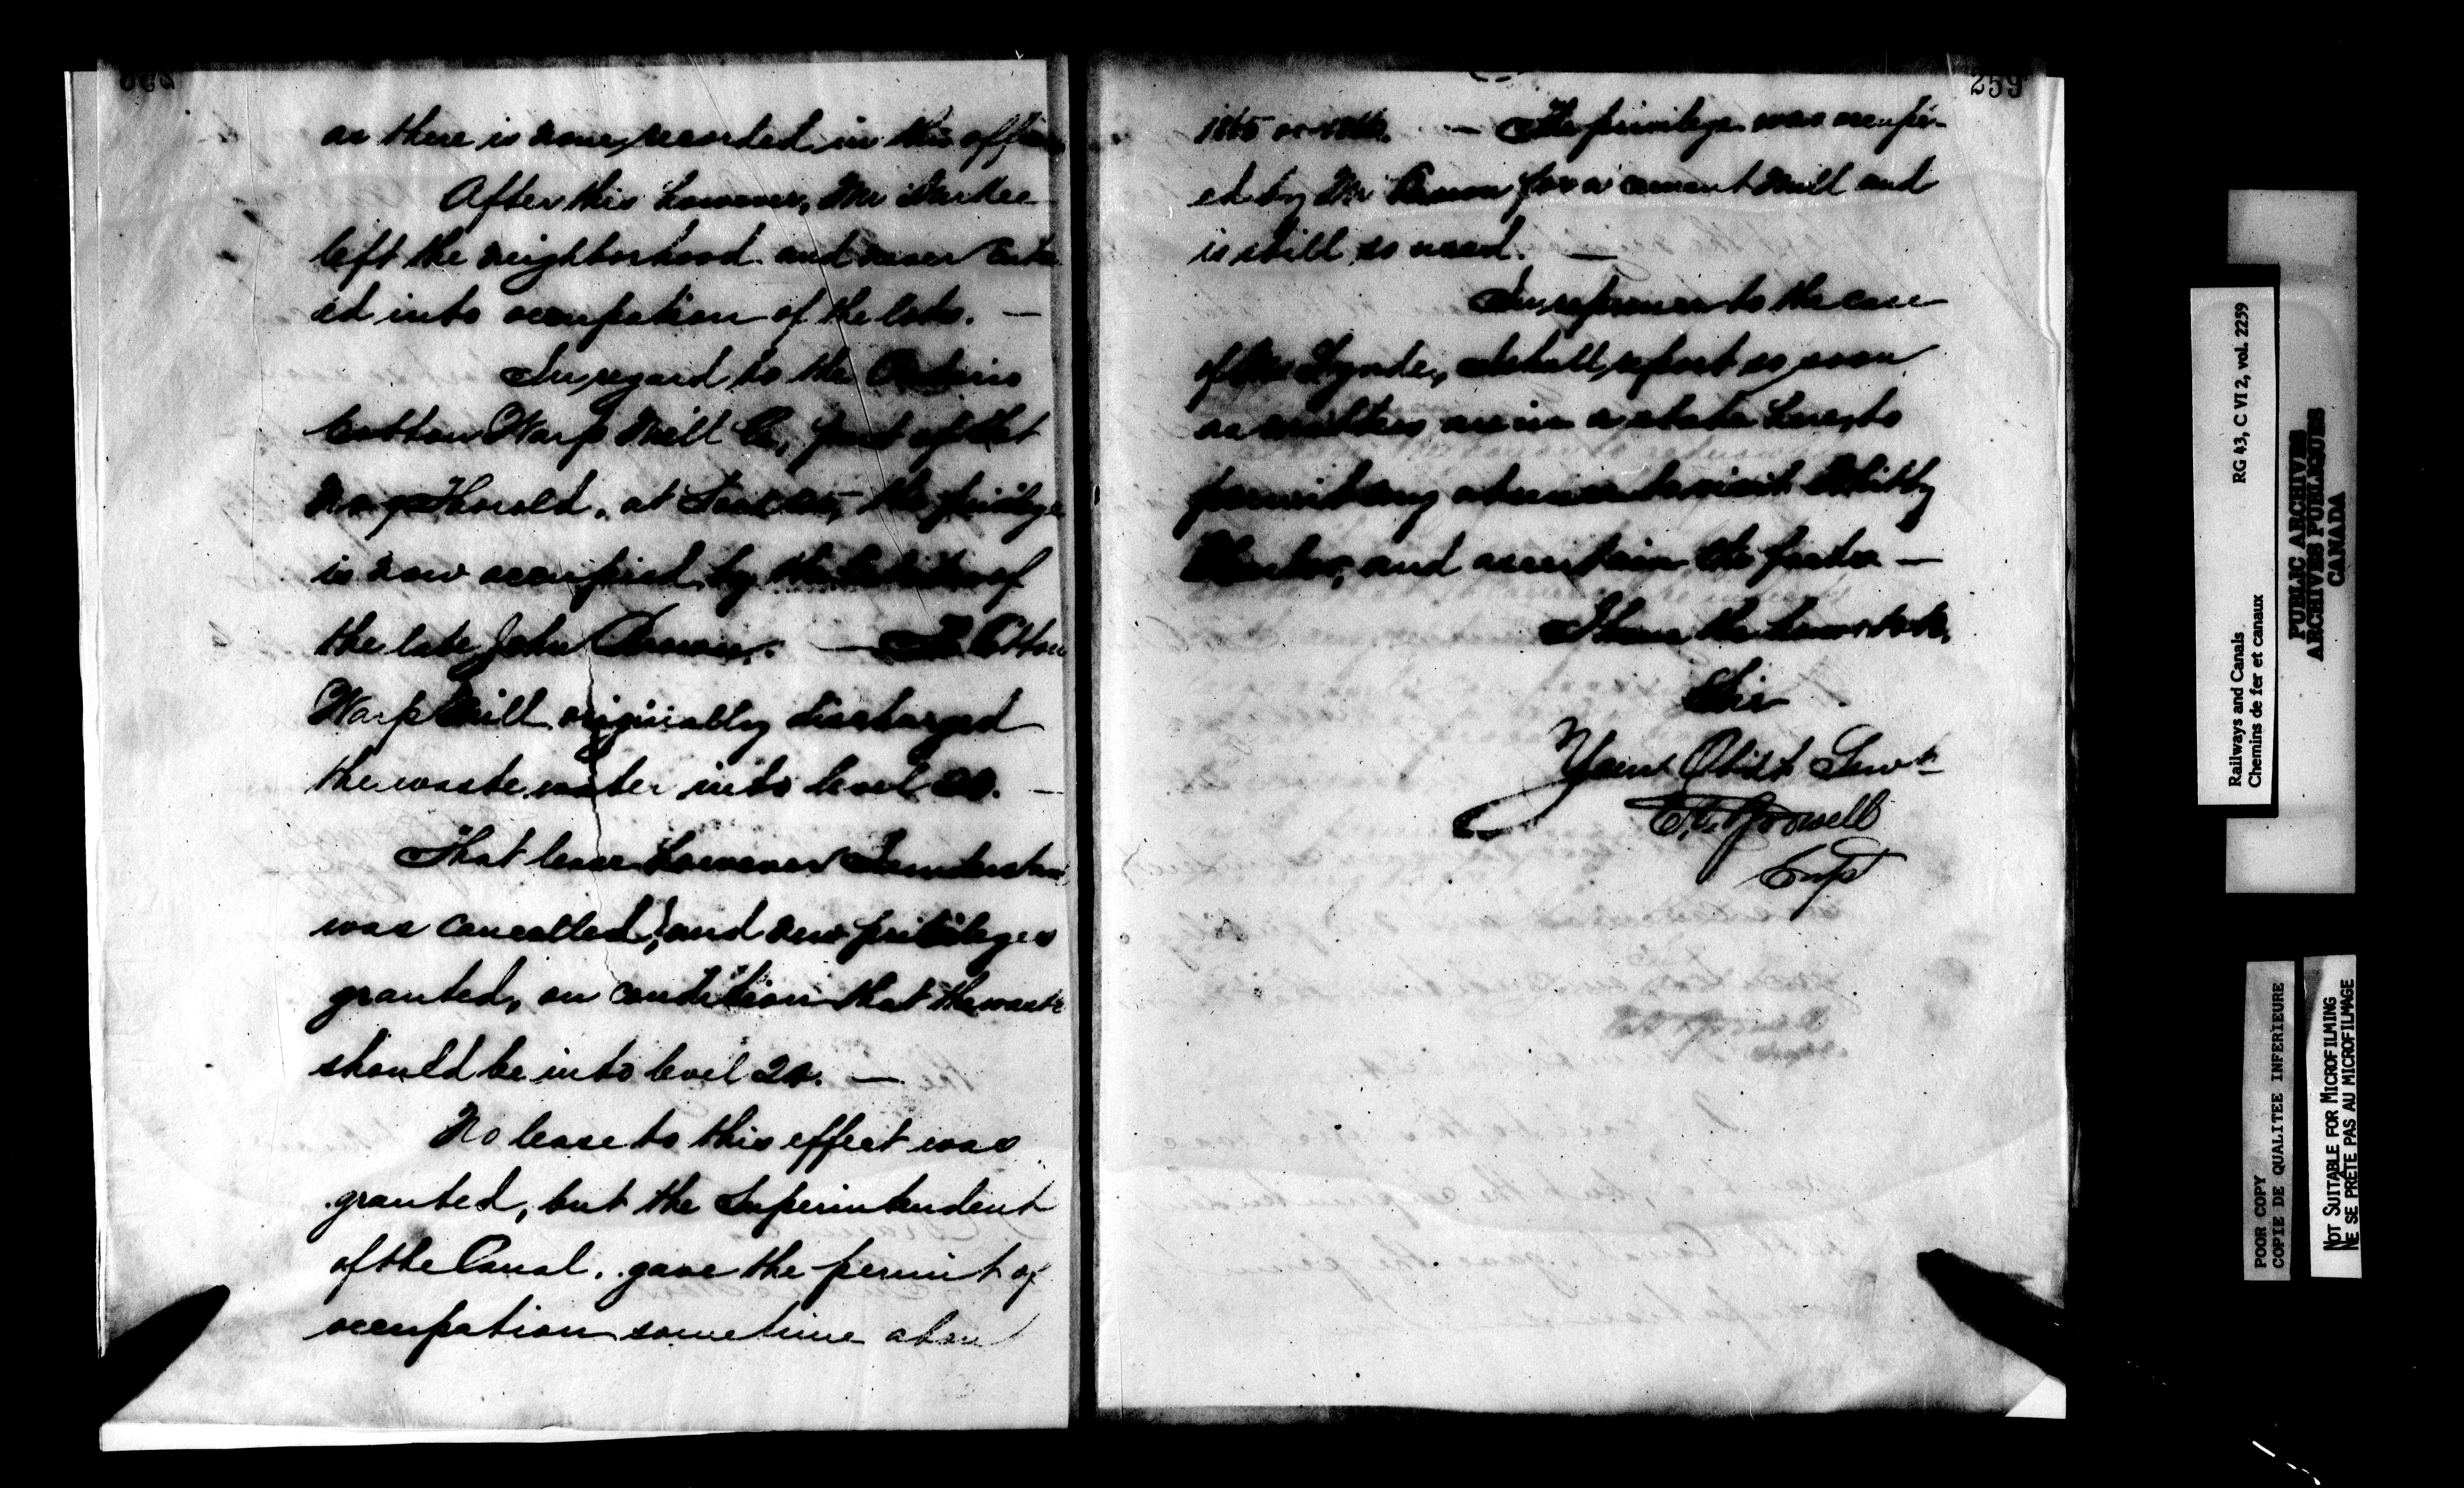 as there is none, recorded, in this office
After this however, Mr
left the neighborhood and never enter
ed into occupation of the lots. —
In, regard, to the Ontario
Cotton Warp Mill Co, part of Lot
No 9 Thorold, at Lock 25, the privilege
is now occupied by the of
the late John Brown. — Cotton
Warp Mill originally discharged
the waste water into level 20. —
That lease however I understand
was cancelled, and new privileges
granted, on condition that the waste
should be into level 24. —
No lease to this effect was
granted, but the Superintendent
of the Canal, gave the permit of
occupation sometime about
259
1865 or 1866. — The privilege was occupi-
ed by Mr Brown for a cement Mill and
is still so used. —
In, reference to the case
of Mr Lynde, I shall, report so soon
as matters are in a state here, to
permit my absence to visit Whitby
Harbor, and ascertain the facts —
I have the honor to be,
Sir
Your Obdt Servt
Supt
Railways and Canals RG 43, C VI 2, vol. 2259
Chemins de fer et canaux
PUBLIC ARCHIVES
ARCHIVES PUBLIQUES
CANADA
POOR COPY
COPIE DE QUALITEE INFERIEURE
NOT SUITABLE FOR MICROFILMING
NE SE PRÊTE PAS AU MICROFILMAGE